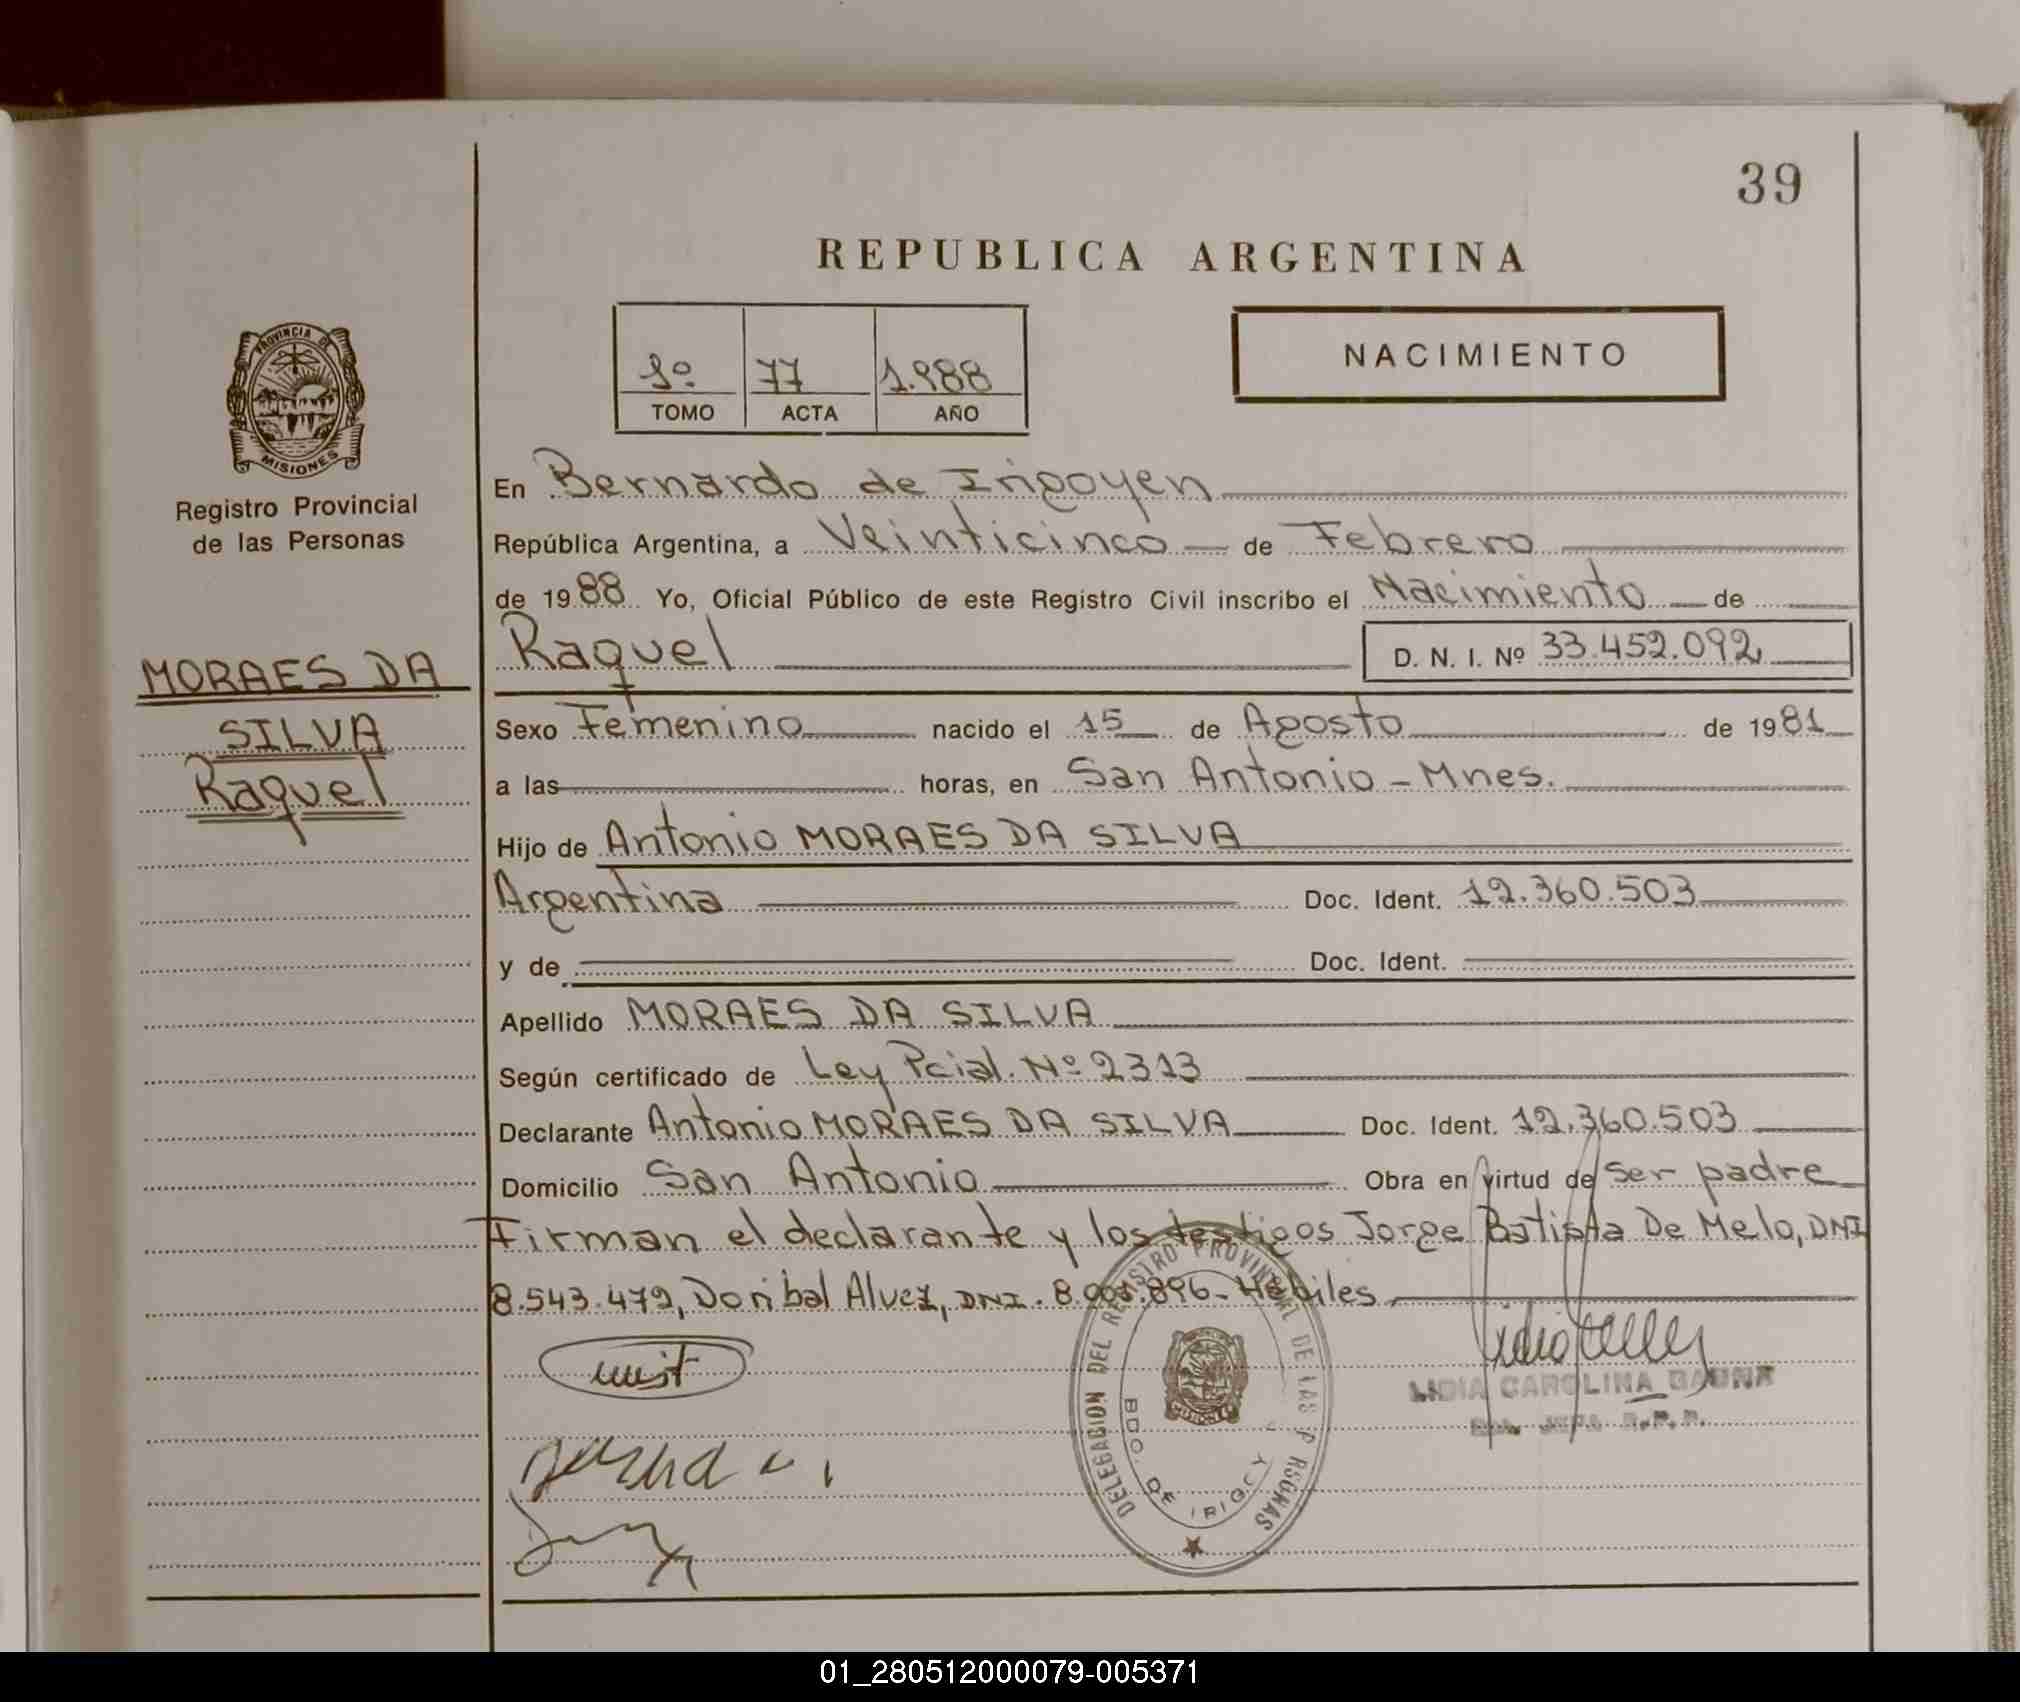 39
REPUBLICA ARGENTINA
1º 77 1.988
TOMO ACTA AÑO
NACIMIENTO
PROVINCIA DE
MISIONES
Registro Provincial
de las Personas
MORAES DA
SILVA
Raquel
En Bernardo de Irigoyen
República Argentina, a Veinticinco de Febrero
de 1988 Yo, Oficial Público de este Registro Civil inscribo el Nacimiento de
Raquel D. N. I. Nº 33.452.092
Sexo Femenino nacido el 15 de Agosto de 1981
a las horas, en San Antonio - Mnes.
Hijo de Antonio MORAES DA SILVA
Argentina Doc. Ident. 12.360.503
y de Doc. Ident.
Apellido MORAES DA SILVA
Según certificado de Ley Pcial. Nº 2313
Declarante Antonio MORAES DA SILVA Doc. Ident. 12.360.503
Domicilio San Antonio Obra en virtud de ser padre
Firman el declarante y los testigos Jorge Batista De Melo, DNI
8.543.472, Doribal Alvez, DNI. 8.001.896 - Hábiles
DELEGACION DEL REGISTRO PROVINCIAL DE LAS PERSONAS
BDO. DE IRIGOY
LIDIA CAROLINA
01_280512000079-005371